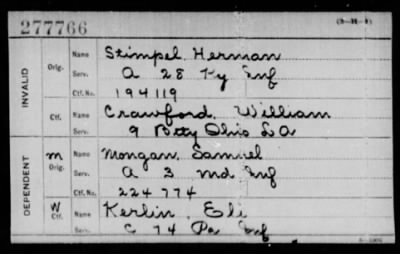 277766
(3-M-1)
INVALID
Orig.
Name Stimpel, Herman
Serv. A 28 Ky Inf
Ctf. No. 194119
Ctf.
Name Crawford, William
Serv. 9 Btty Ohio L A
DEPENDENT
M
Orig.
Name Mongan, Samuel
Serv. A 3 Md Inf
Ctf. No. 224774
W
Ctf.
Name Kerlin, Eli
Serv. C 74 Pa Inf